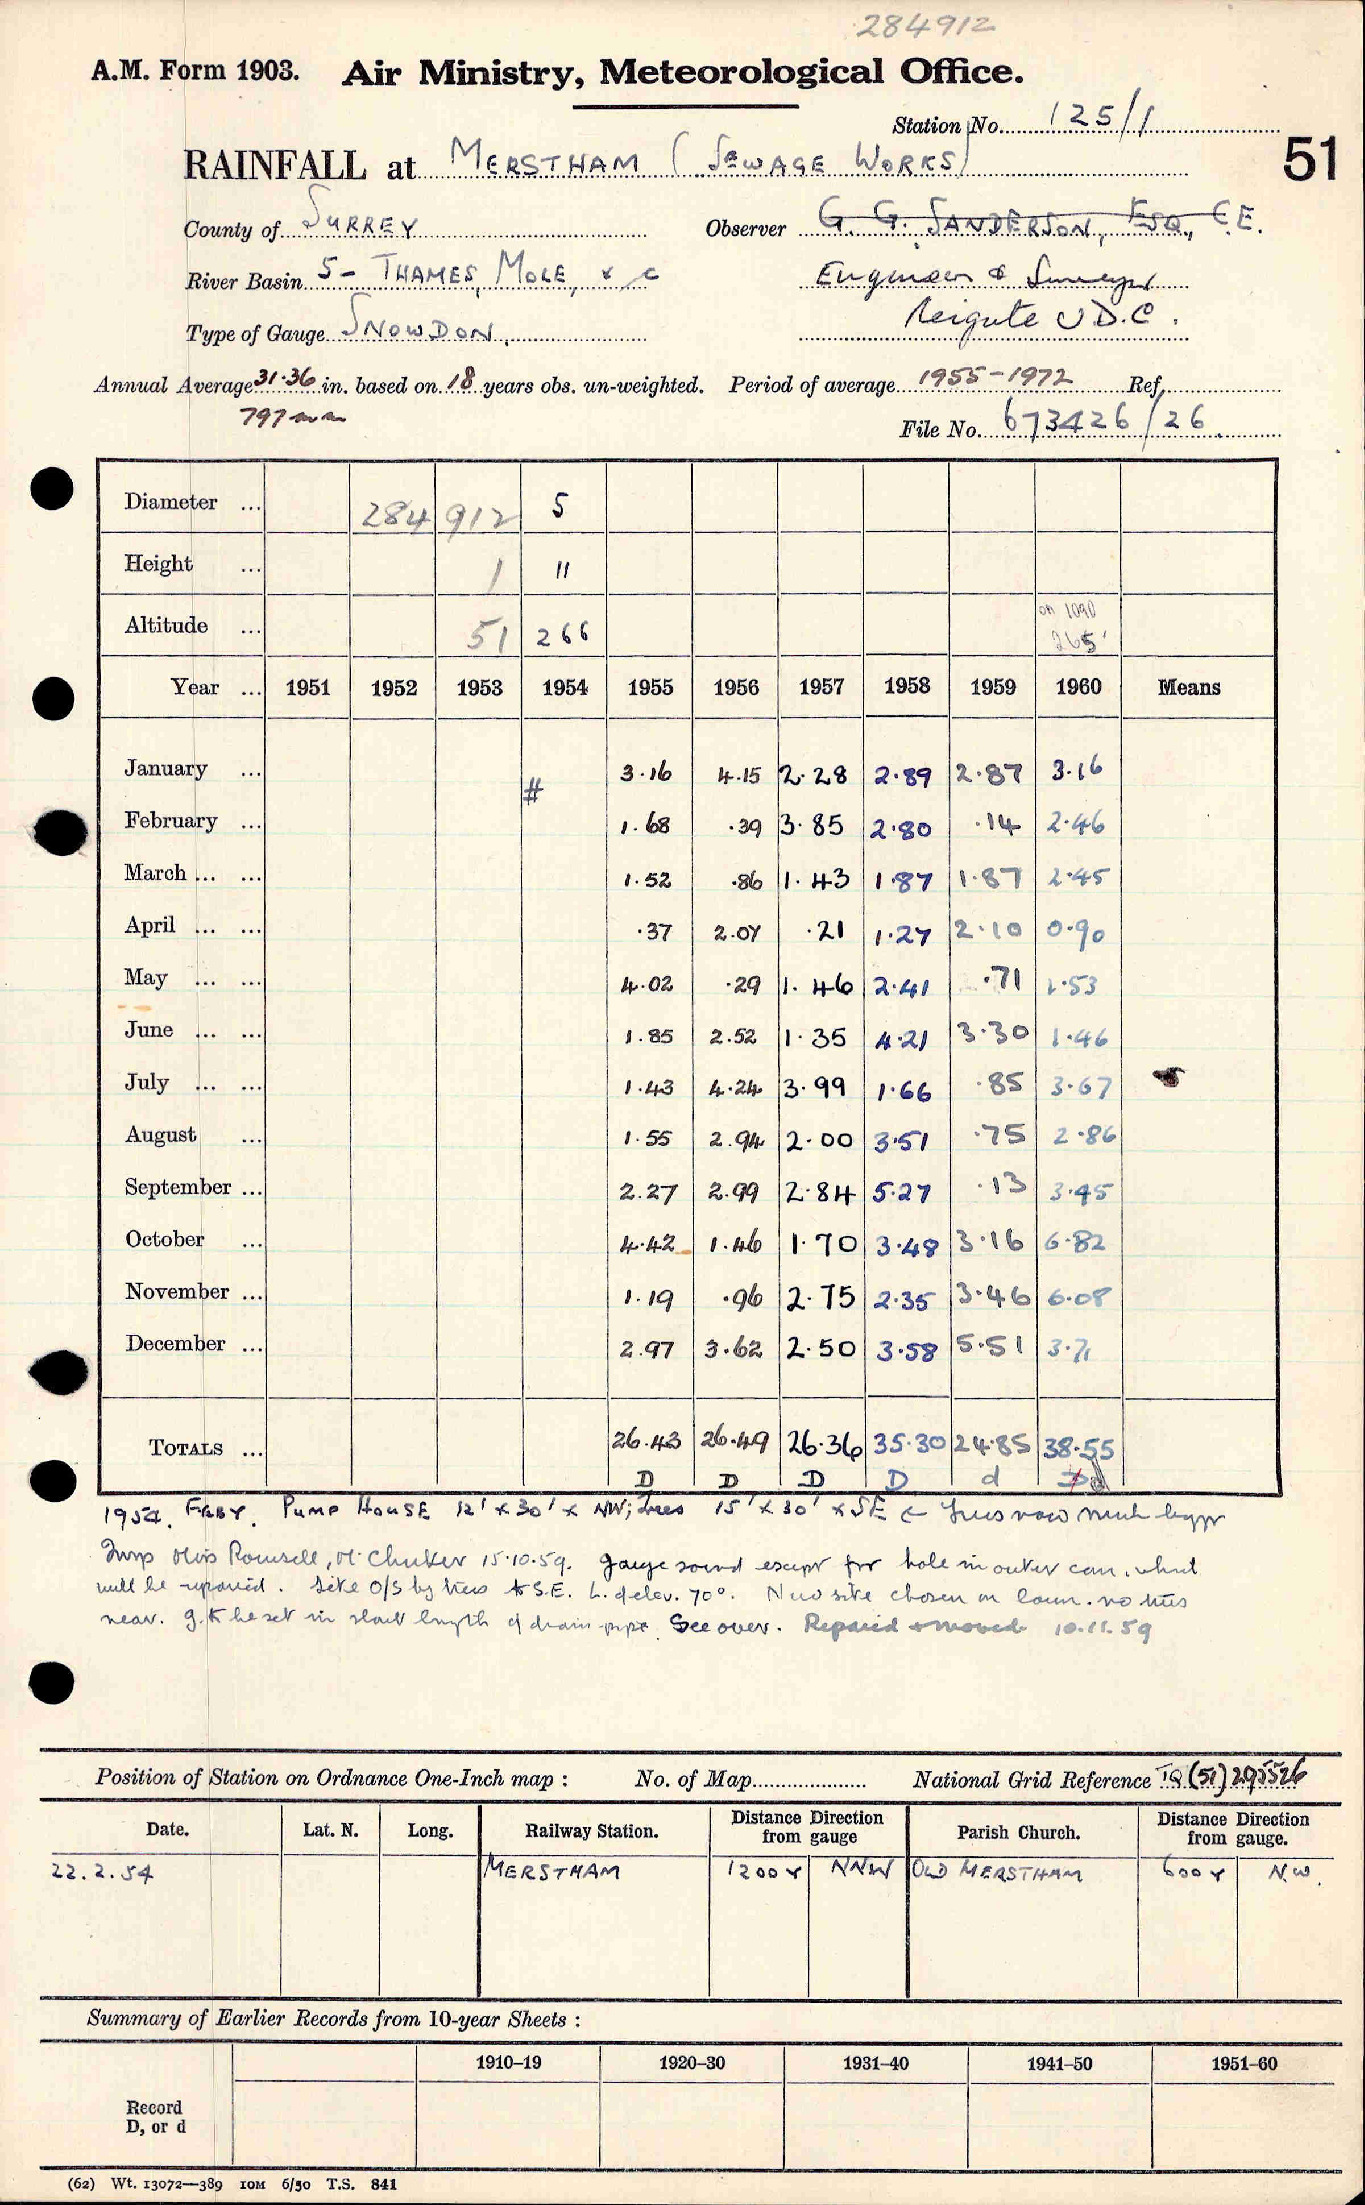 284912
A.M. Form 1903. Air Ministry, Meteorological Office.
Station No. 125/1
51
RAINFALL at MERSTHAM (SEWAGE WORKS)
County of SURREY Observer G. G. SANDERSON, ESQ., C.E.
River Basin 5 - THAMES, MOLE, & c Engineer & Surveyor
Type of Gauge SNOWDON. Reigate U.D.C.
Annual Average 31.36 in. based on 18 years obs. un-weighted. Period of average 1955-1972 Ref.
797 mm File No. 673426/26
Diameter ... 284 912 5
Height ... 1 11
Altitude ... 51 266 on 1090 265'
Year ... 1951 1952 1953 1954 1955 1956 1957 1958 1959 1960 Means
January ... # 3.16 4.15 2.28 2.89 2.87 3.16
February ... 1.68 .39 3.85 2.80 .14 2.46
March ... ... 1.52 .86 1.43 1.87 1.87 2.45
April ... ... .37 2.07 .21 1.27 2.10 0.90
May ... ... 4.02 .29 1.46 2.41 .71 1.53
June ... ... 1.85 2.52 1.35 4.21 3.30 1.46
July ... ... 1.43 4.24 3.99 1.66 .85 3.67
August ... 1.55 2.94 2.00 3.51 .75 2.86
September ... 2.27 2.99 2.84 5.27 .13 3.45
October ... 4.42 1.46 1.70 3.48 3.16 6.82
November ... 1.19 .96 2.75 2.35 3.46 6.08
December ... 2.97 3.62 2.50 3.58 5.51 3.71
TOTALS ... 26.43 26.49 26.36 35.30 24.85 38.55
D D D D d D d
1954. FEBY. PUMP HOUSE 12' x 30' x NW; trees 15' x 30' x SE ← Trees now much bigger
Insp Miss Rounsell, Mr Chuker 15.10.59. gauge sound except for hole in outer can, which
will be repaired. Site O/S by trees to S.E. L. of elev. 70°. New site chosen on lawn. no trees
near. g. to be set in short length of drain pipe. See over. Repaired & moved 10.11.59
Position of Station on Ordnance One-Inch map : No. of Map National Grid Reference TQ (51) 295526
Date. Lat. N. Long. Railway Station. Distance Direction from gauge Parish Church. Distance Direction from gauge.
22.2.54 MERSTHAM 1200 Y NNW OLD MERSTHAM 600 Y N.W.
Summary of Earlier Records from 10-year Sheets :
1910-19 1920-30 1931-40 1941-50 1951-60
Record
D, or d
(62) Wt. 13072—389 10M 6/50 T.S. 841